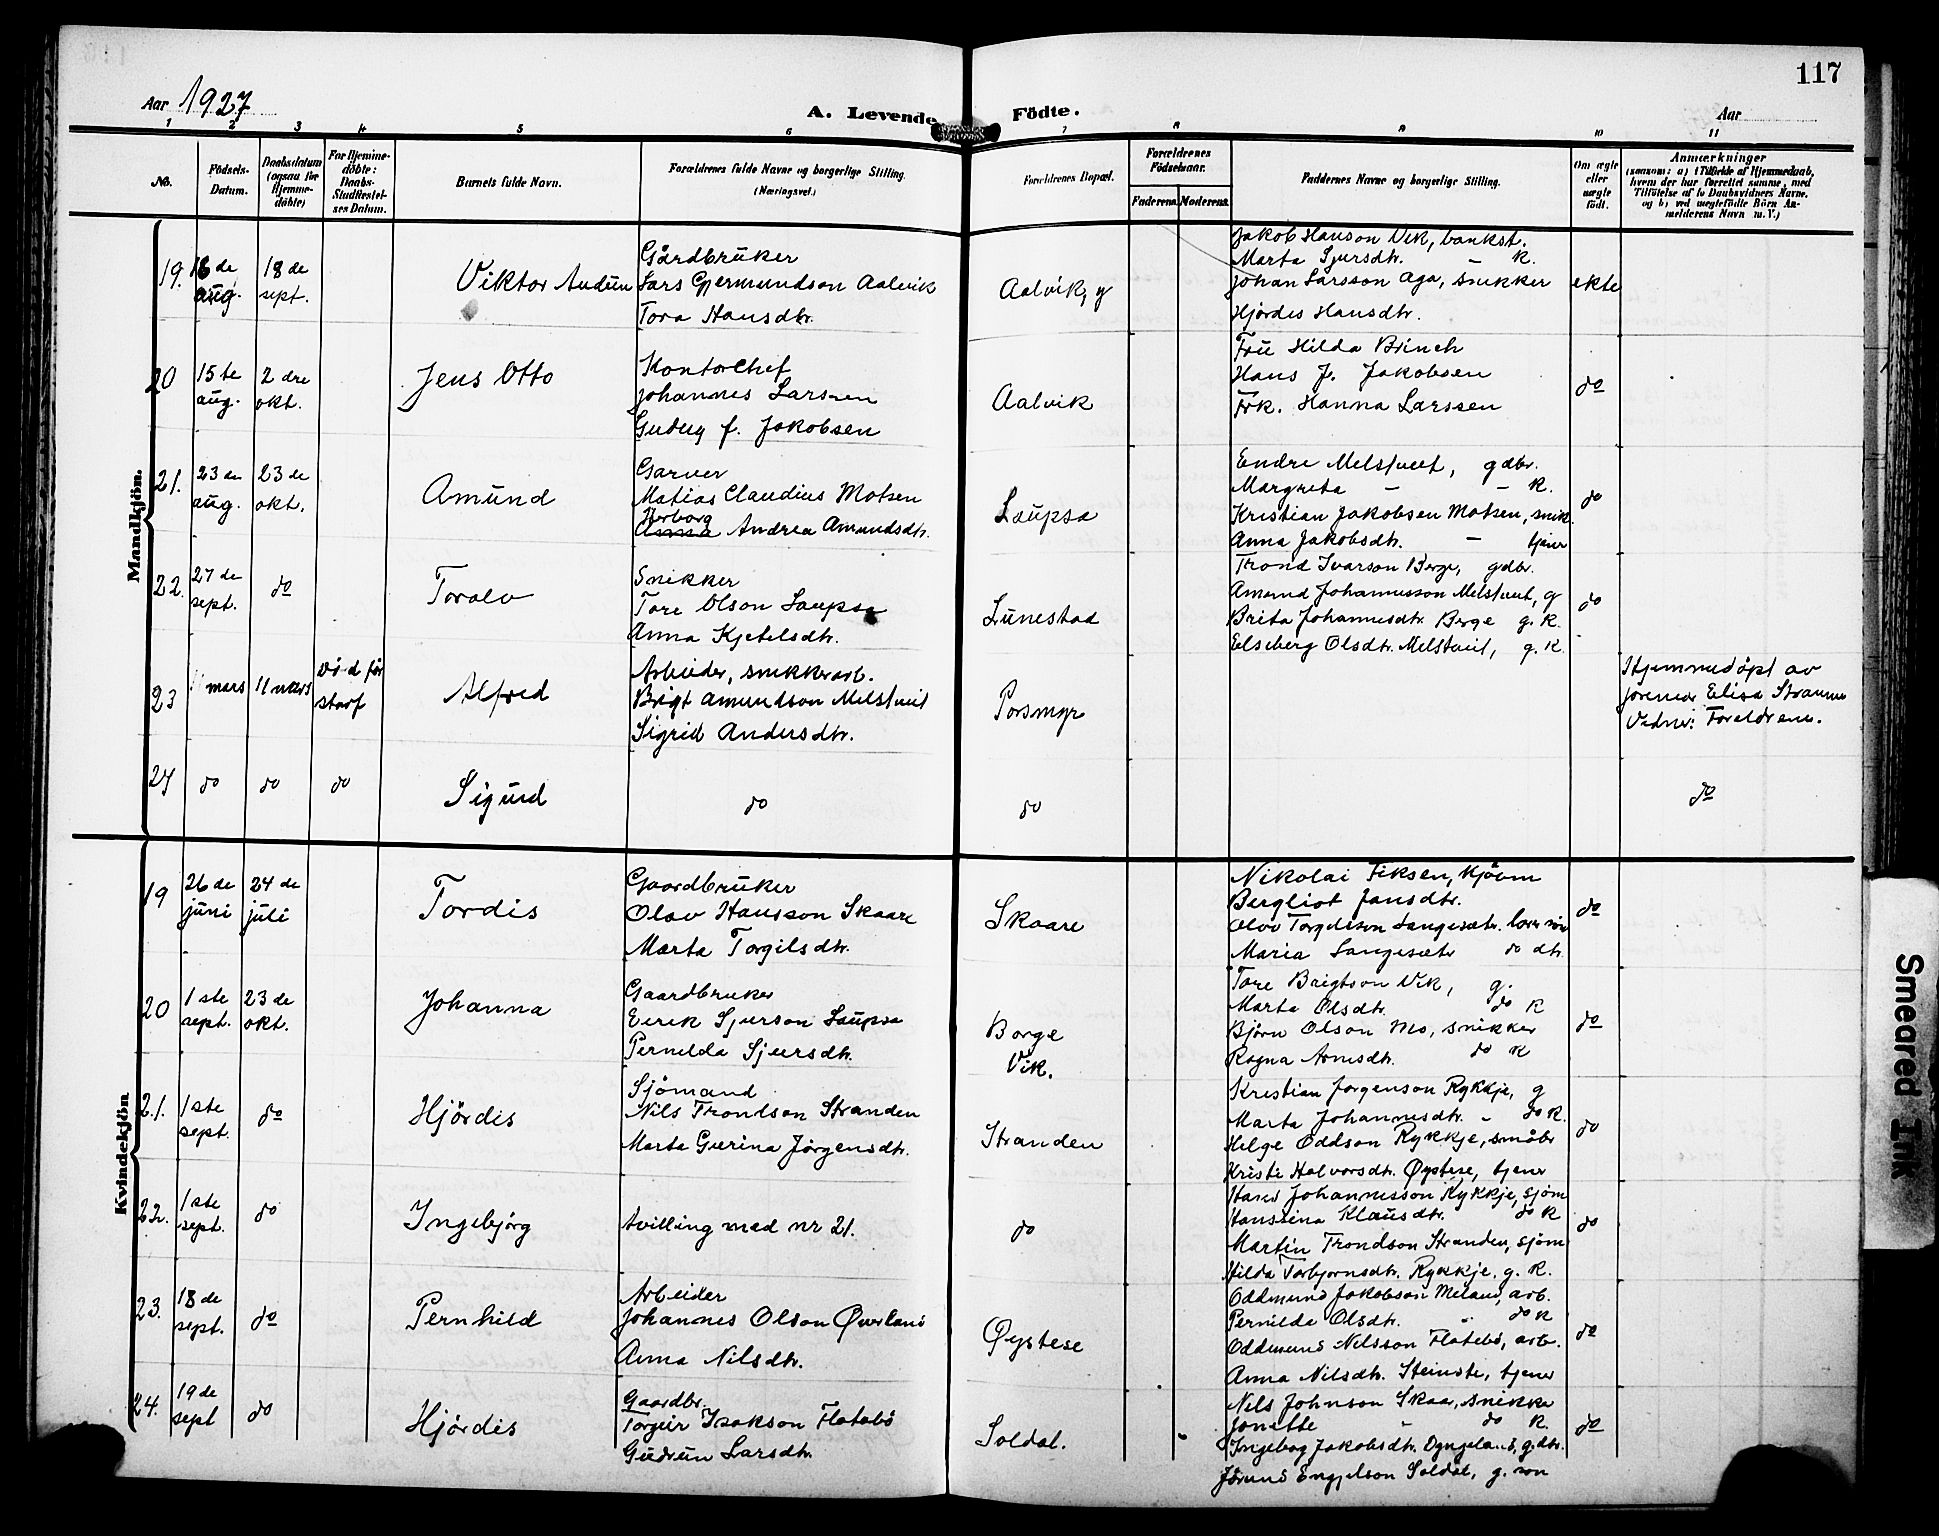 117
Aar 1927
A. Levende Födte.
Aar
1 2 3 4 5 6 7 8 9 10 11
No.
Födsels-Datum.
Daabsdatum (ogsaa for Hjemme-döbte)
For Hjemme-döbte: Daabs-Stadfæstel-ses Datum.
Barnets fulde Navn.
Forældrenes fulde Navne og borgerlige Stilling. (Næringsvei.)
Forældrenes Bopæl.
Forældrenes Födselsaar.
Faderens. Moderens.
Faddernes Navne og borgerlige Stilling.
Om ægte eller uægte födt.
Anmærkninger
(saasom: a) i Tilfælde af Hjemmedaab,
hvem der har forrettet samme, med
Tilföielse af to Daabsvidners Navne.
og b) ved uægtefödte Börn An-
melderens Navn m. V.)
Mandkjön.
19. 16 de aug. 18 de sept.
Viktor Audun
Gårdbruker
Lars Gjermundson Aalvik
Tora Hansdtr.
Aalvik, g
Jakob Hanson Vik, bankst.
Marta Sjursdtr. - K.
Johan Larsson Aga, snikker
Hjørdis Hansdtr.
ekte
20 15 te aug. 2 dre okt.
Jens Otto
Kontorchef
Johannes Larsen
Gudny f. Jakobsen
Aalvik
Fru Hilda Brinch
Hans J. Jakobsen
Frk. Hanna Larssen
do
21. 23 de aug. 23 de okt.
Amund
Garver
Matias Claudius Motzen
Herborg
Anna Andrea Amundsdtr.
Laupsa
Endre Melstveit, gdbr.
Margreta - - K.
Kristian Jakobsen Motzen, snik.
Anna Jakobsdtr. - tjener
do
22. 27 de sept. do
Toralv
Snikker
Tore Olson Laupsa
Anna Kjetelsdtr.
Lunestad
Trond Ivarson Berge, gdbr.
Amund Johannesson Melstveit, g
Brita Johannesdtr. Berge g. K.
Elseberg Olsdtr. Melstveit, g. K.
do
23 11 mars 11 mars
Alfred
Arbeider, snikkerarb.
Brigt Amundson Melstveit
Sigrid Andersdtr.
Porsmyr
Hjemmedöpt av
jormor Elisa Straume
Vidner: Foreldrene.
24 do do do
Sigurd
do
do
do
Kvindekjön
19 26 de juni 24 de juli
Tordis
Gaardbruker
Olav Hansson Skaare
Marta Torgilsdtr.
Skaare
Nikolai Fiksen, kjöpm
Bergliot Jansdtr.
Olav Torgilsson Langesæter
Maria Langesæter do dtr.
do
20 1 ste sept. 23 de okt.
Johanna
Gaardbruker
Eirik Sjurson Laupsa
Pernilda Sjursdtr.
Borge
Vik.
Tore Brigtson Vik, g.
Marta Olsdtr. do K
Björn Olson Mo, snikker
Ragna Arnesdtr. do K
do
21. 1 ste sept. do
Hjördis
Sjömand
Nils Trondson Stranden
Marta Gurina Jörgensdtr.
Stranden
Kristian Jörgenson Rykkje, g
Marta Johannesdtr. - do K.
Helge Oddson Rykkje, småbr
Kristi Halvorsdtr. Øystese, tjener
do
22. 1 ste sept. do
Ingebjörg
tvilling med nr 21.
do
Hans Johannesson Rykkje, sjöm
Hansina Klausdtr. do K
Martin Trondson Stranden, sjöm
Hilda Torbjörnsdtr. Rykkje, g. K.
do
23. 18 de sept. do
Pernhild
Arbeider
Johannes Olson Øverland
Anna Nilsdtr.
Øystese
Oddmund Jakobson Meland, arb.
Pernilda Olsdtr. " do K
Oddmund Nilsson Flatebö, arb.
Anna Nilsdtr. Steinstö, tjener
do
24. 19 de sept do
Hjördis
Gaardbr.
Torgeir Isakson Flatebö
Gudrun Larsdtr.
Soldal.
Nils Johnson Skaar, snikker
Jonette - do K.
Ingeborg Jakobsdtr. g.dtr.
Jörund Engjelson Soldal, g. son
do
Smeared Ink